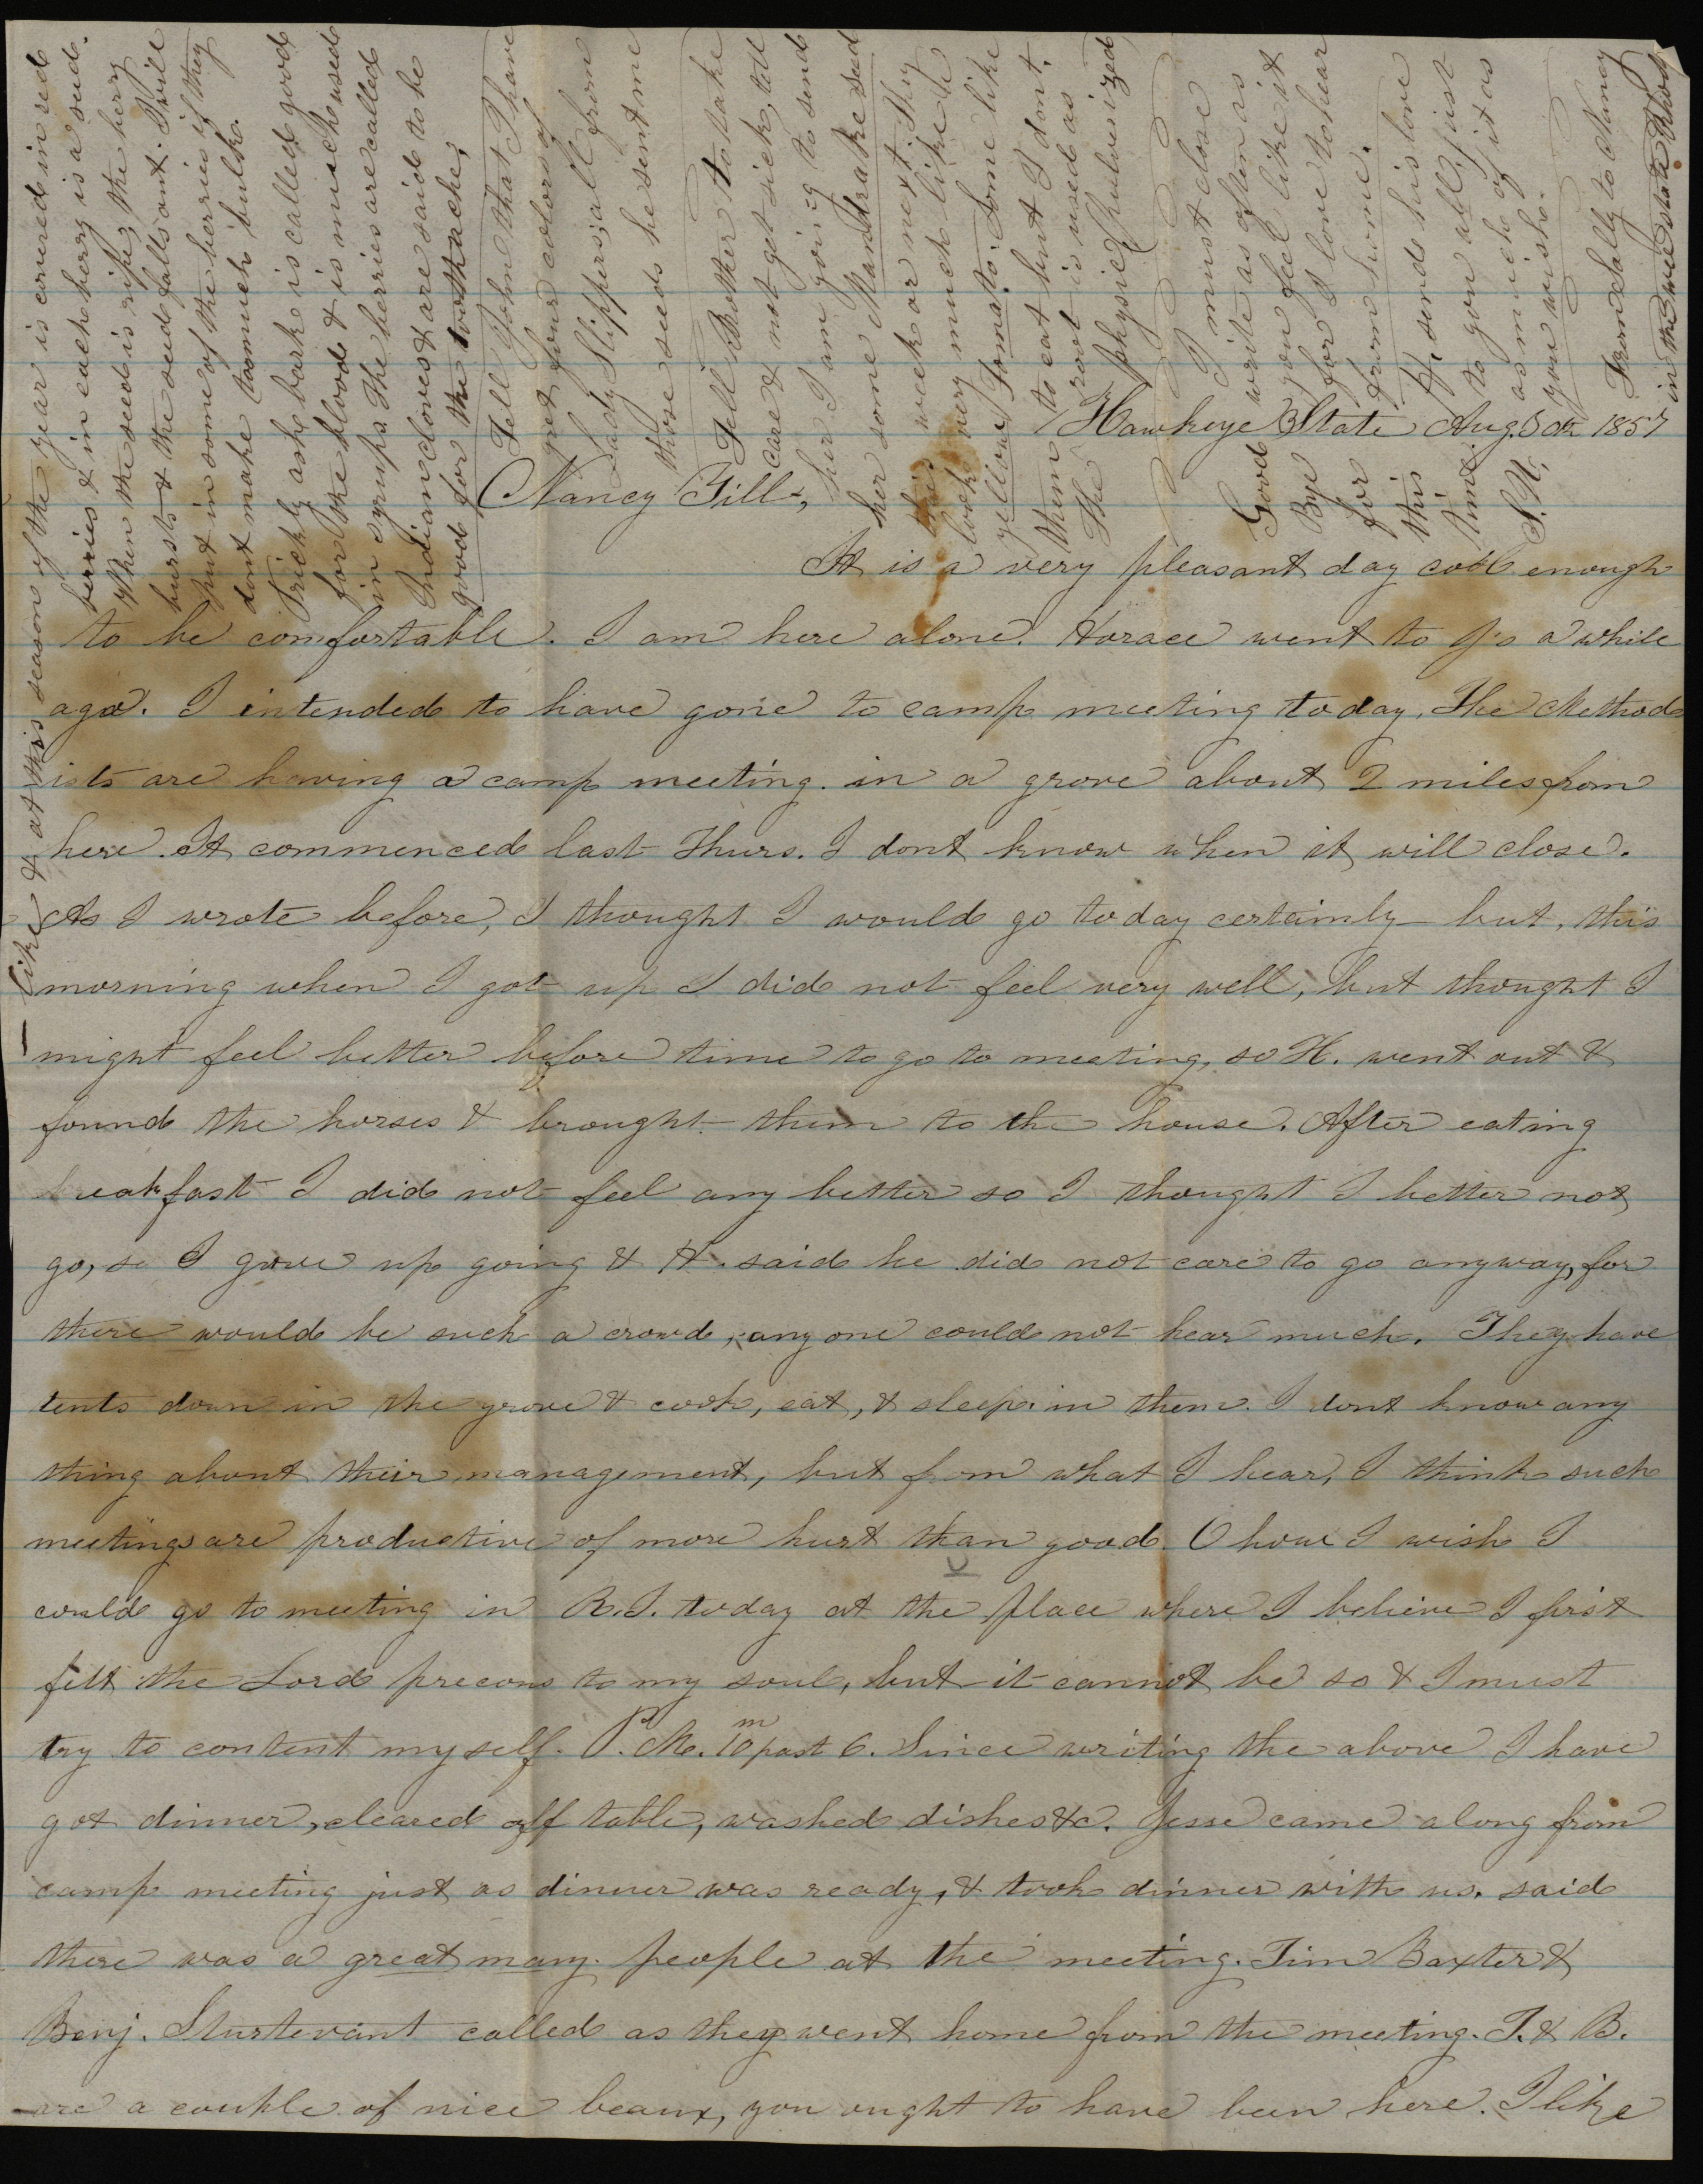 Hawkeye State Aug. 5th 1857
Nancy Till,
It is a very pleasant day cool enough
to be comfortable. I am here alone. Horace went to J's a while
ago. I intended to have gone to camp meeting today. The Method
ists are having a camp meeting in a grove about 2 miles from
here. It commenced last Thurs. I dont know when it will close.
As I wrote before, I thought I would go today certainly but, this
morning when I got up I did not feel very well, but thought I
might feel better before time to go to meeting, so H. went out &
found the horses & brought them to the house. After eating
breakfast I did not feel any better so I thought I better not
go, so I gave up going & H. said he did not care to go anyway, for
there would be such a crowd, any one could not hear much. They have
tents down in the grove & cook, eat, & sleep in them. I dont know any
thing about their management, but from what I hear, I think such
meetings are productive of more hurt than good. O how I wish I
could go to meeting in R.I. today at the place where I believe I first
felt the Lord precous to my soul, but it cannot be so & I must
try to content myself. P.M. 10m past 6. Since writing the above I have
got dinner, cleared off table, washed dishes &c. Jesse came along from
camp meeting just as dinner was ready, & took dinner with us. said
there was a great many people at the meeting. Tim Baxter &
Benj. Sturtevant called as they went home from the meeting. T. & B.
are a couple of nice beaux, you ought to have been here. I like
like & at this season of the year is covered in red
berries & in each berry is a seed.
When the seed is ripe, the berry
bursts & the seed falls out. I will
put in some of the berries if they
dont make too much bulk.
Prickly ash bark is called good
for the blood & is much used
in syrups. The berries are called
Indian cloves & are said to be
good for the toothache.
Tell John that I have
got four colors of
Lady Slippers, all from
those seeds he sent me
Tell Mother to take
care & not get sick, tell
her I am going to send
her some Mandrake seed
this week or next. They
look very much like
yellow Tomato. Some like
them to eat but I dont.
The root is used as
physic, (pulverized)
I must close
write as often as
you feel like it
for I love to hear
from home.
H. sends his love
to you all, just
as much of it as
you wish.
From Sally to Nancy
in the state Rhod
Good
Bye
for
this
time
S. N.